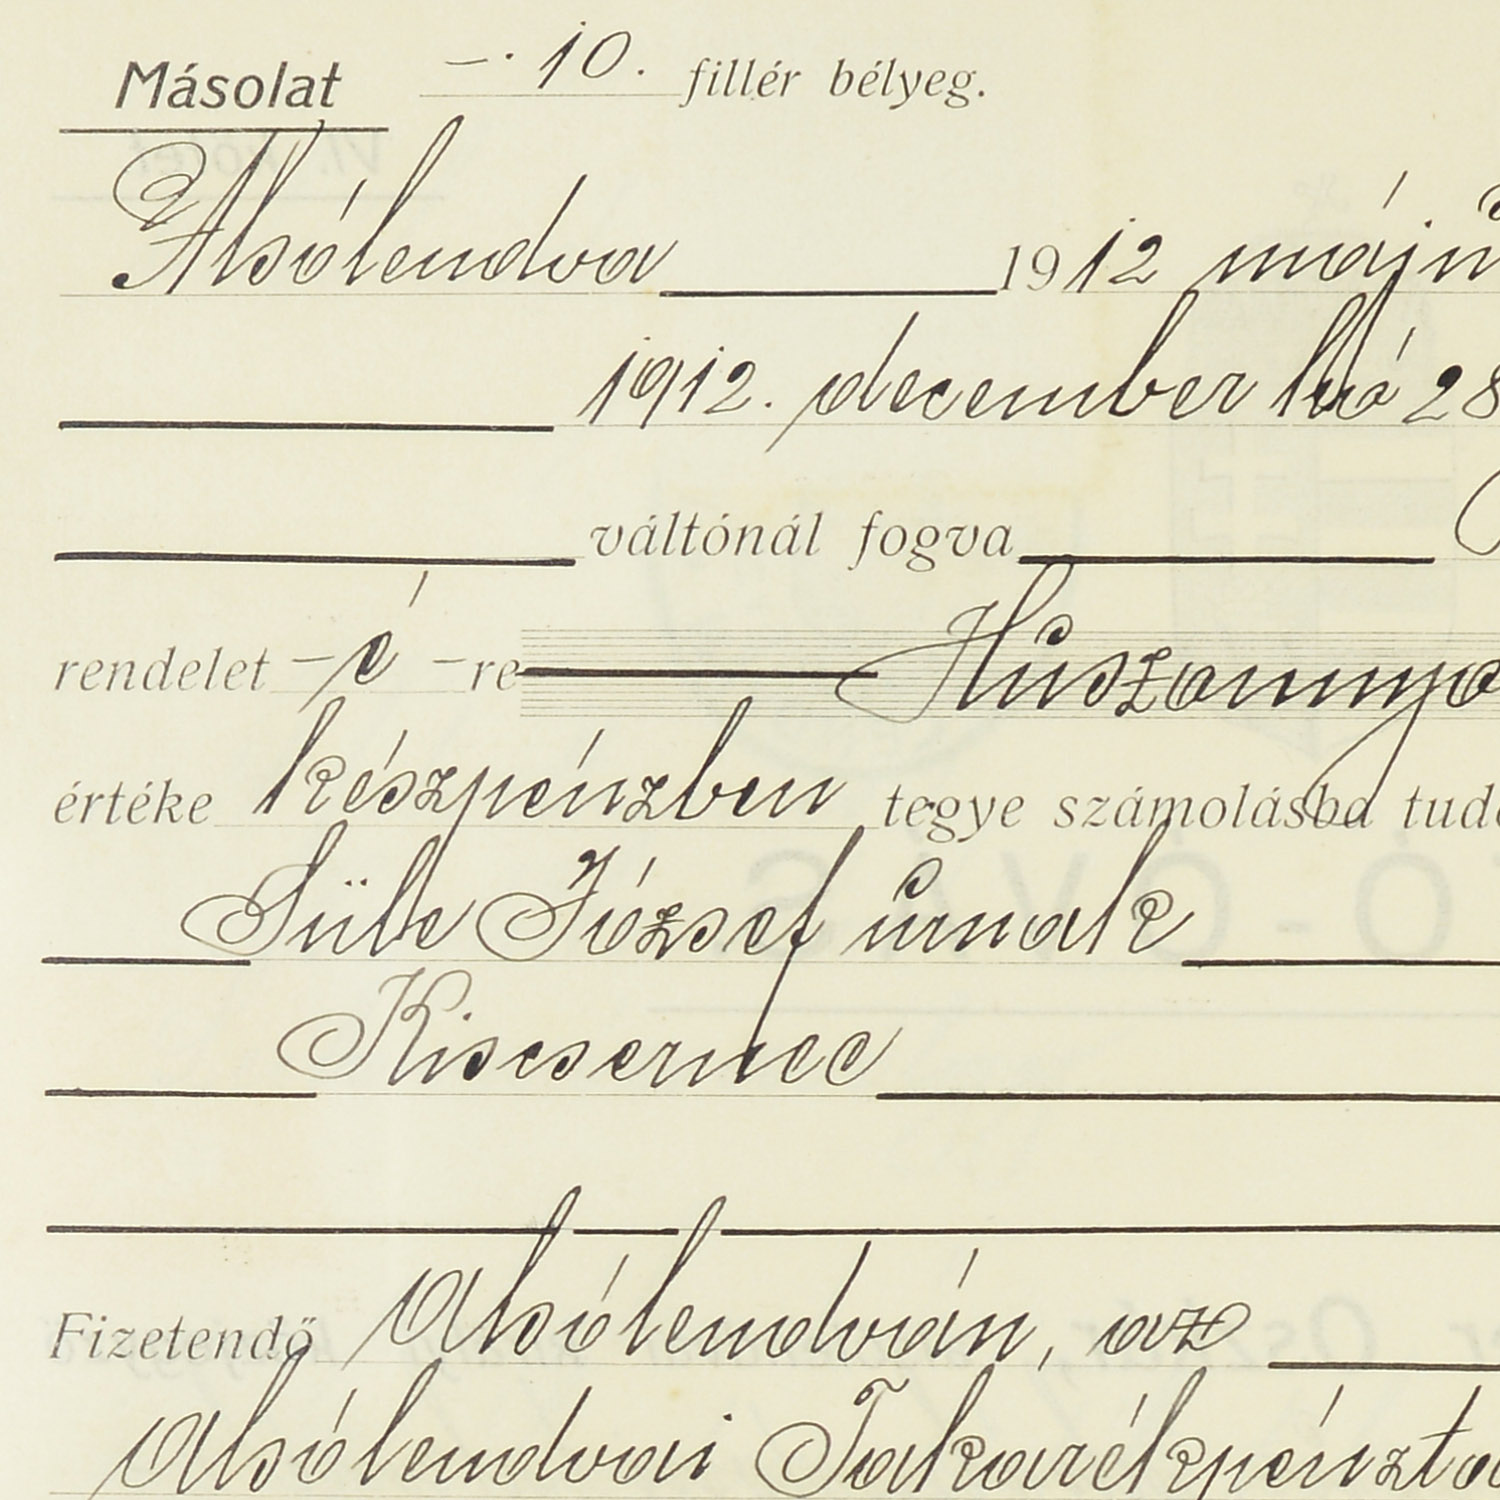 Másolat —. 10. fillér bélyeg.
Alsólendva 1912 máju
1912. december hó 28
váltónál fogva
rendelet – é –re Húszonnyo
értéke készpénzben tegye számolásba tud
Süle József úrnak
Kiscsernec
Fizetendő Alsólendván, az
Alsólendvai Takarékpénzta